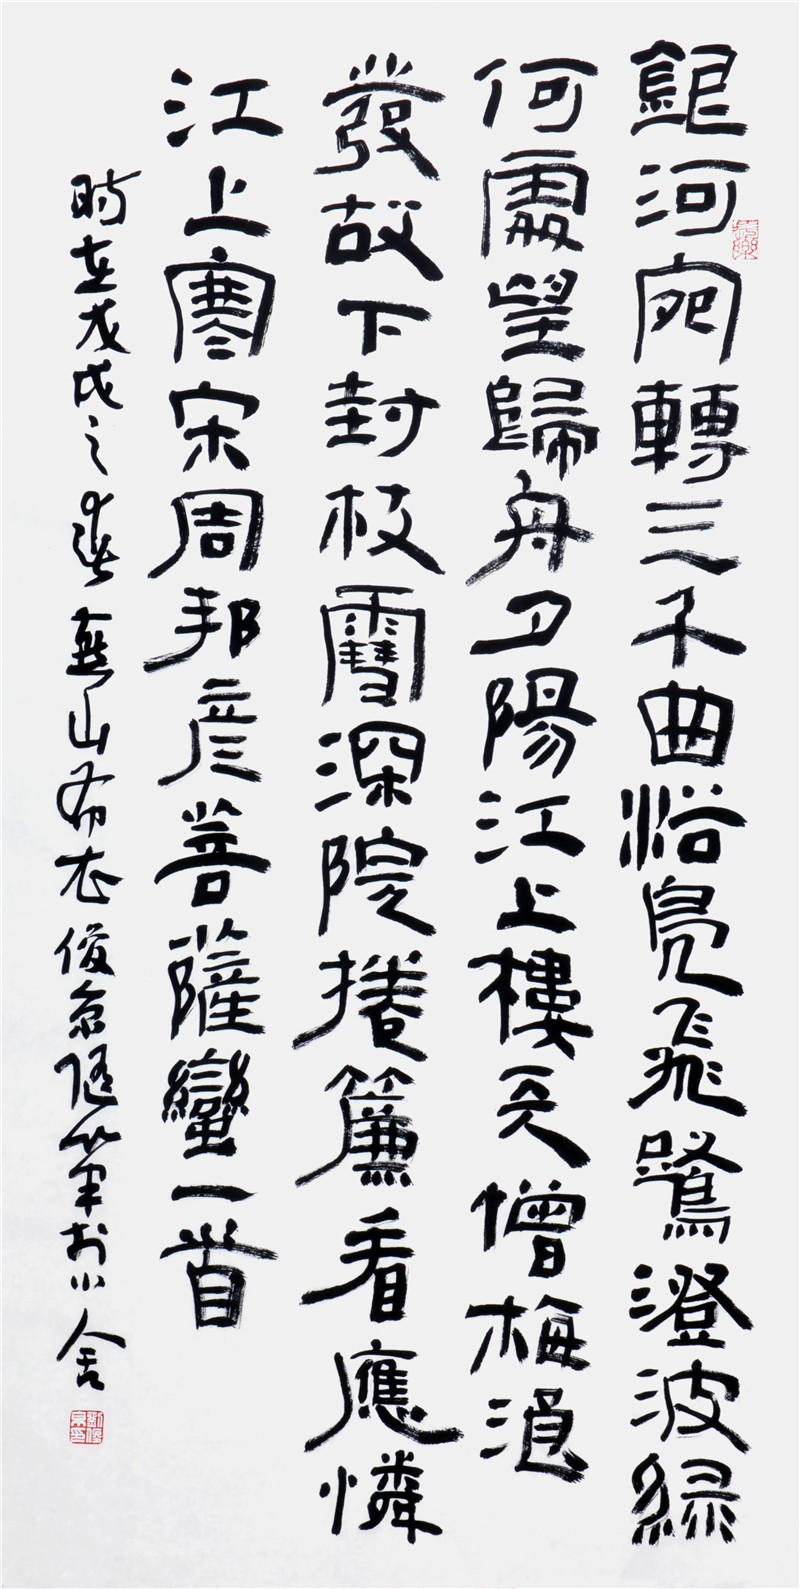 銀河宛轉三千曲浴鳧飛鷺澄波綠
何處望歸舟夕陽江上樓天憎梅浪
發故下封枝雪深院捲簾看應憐
江上寒宋周邦彥菩薩蠻一首
時在戊戌之春燕山布衣俊京隨筆於小舍